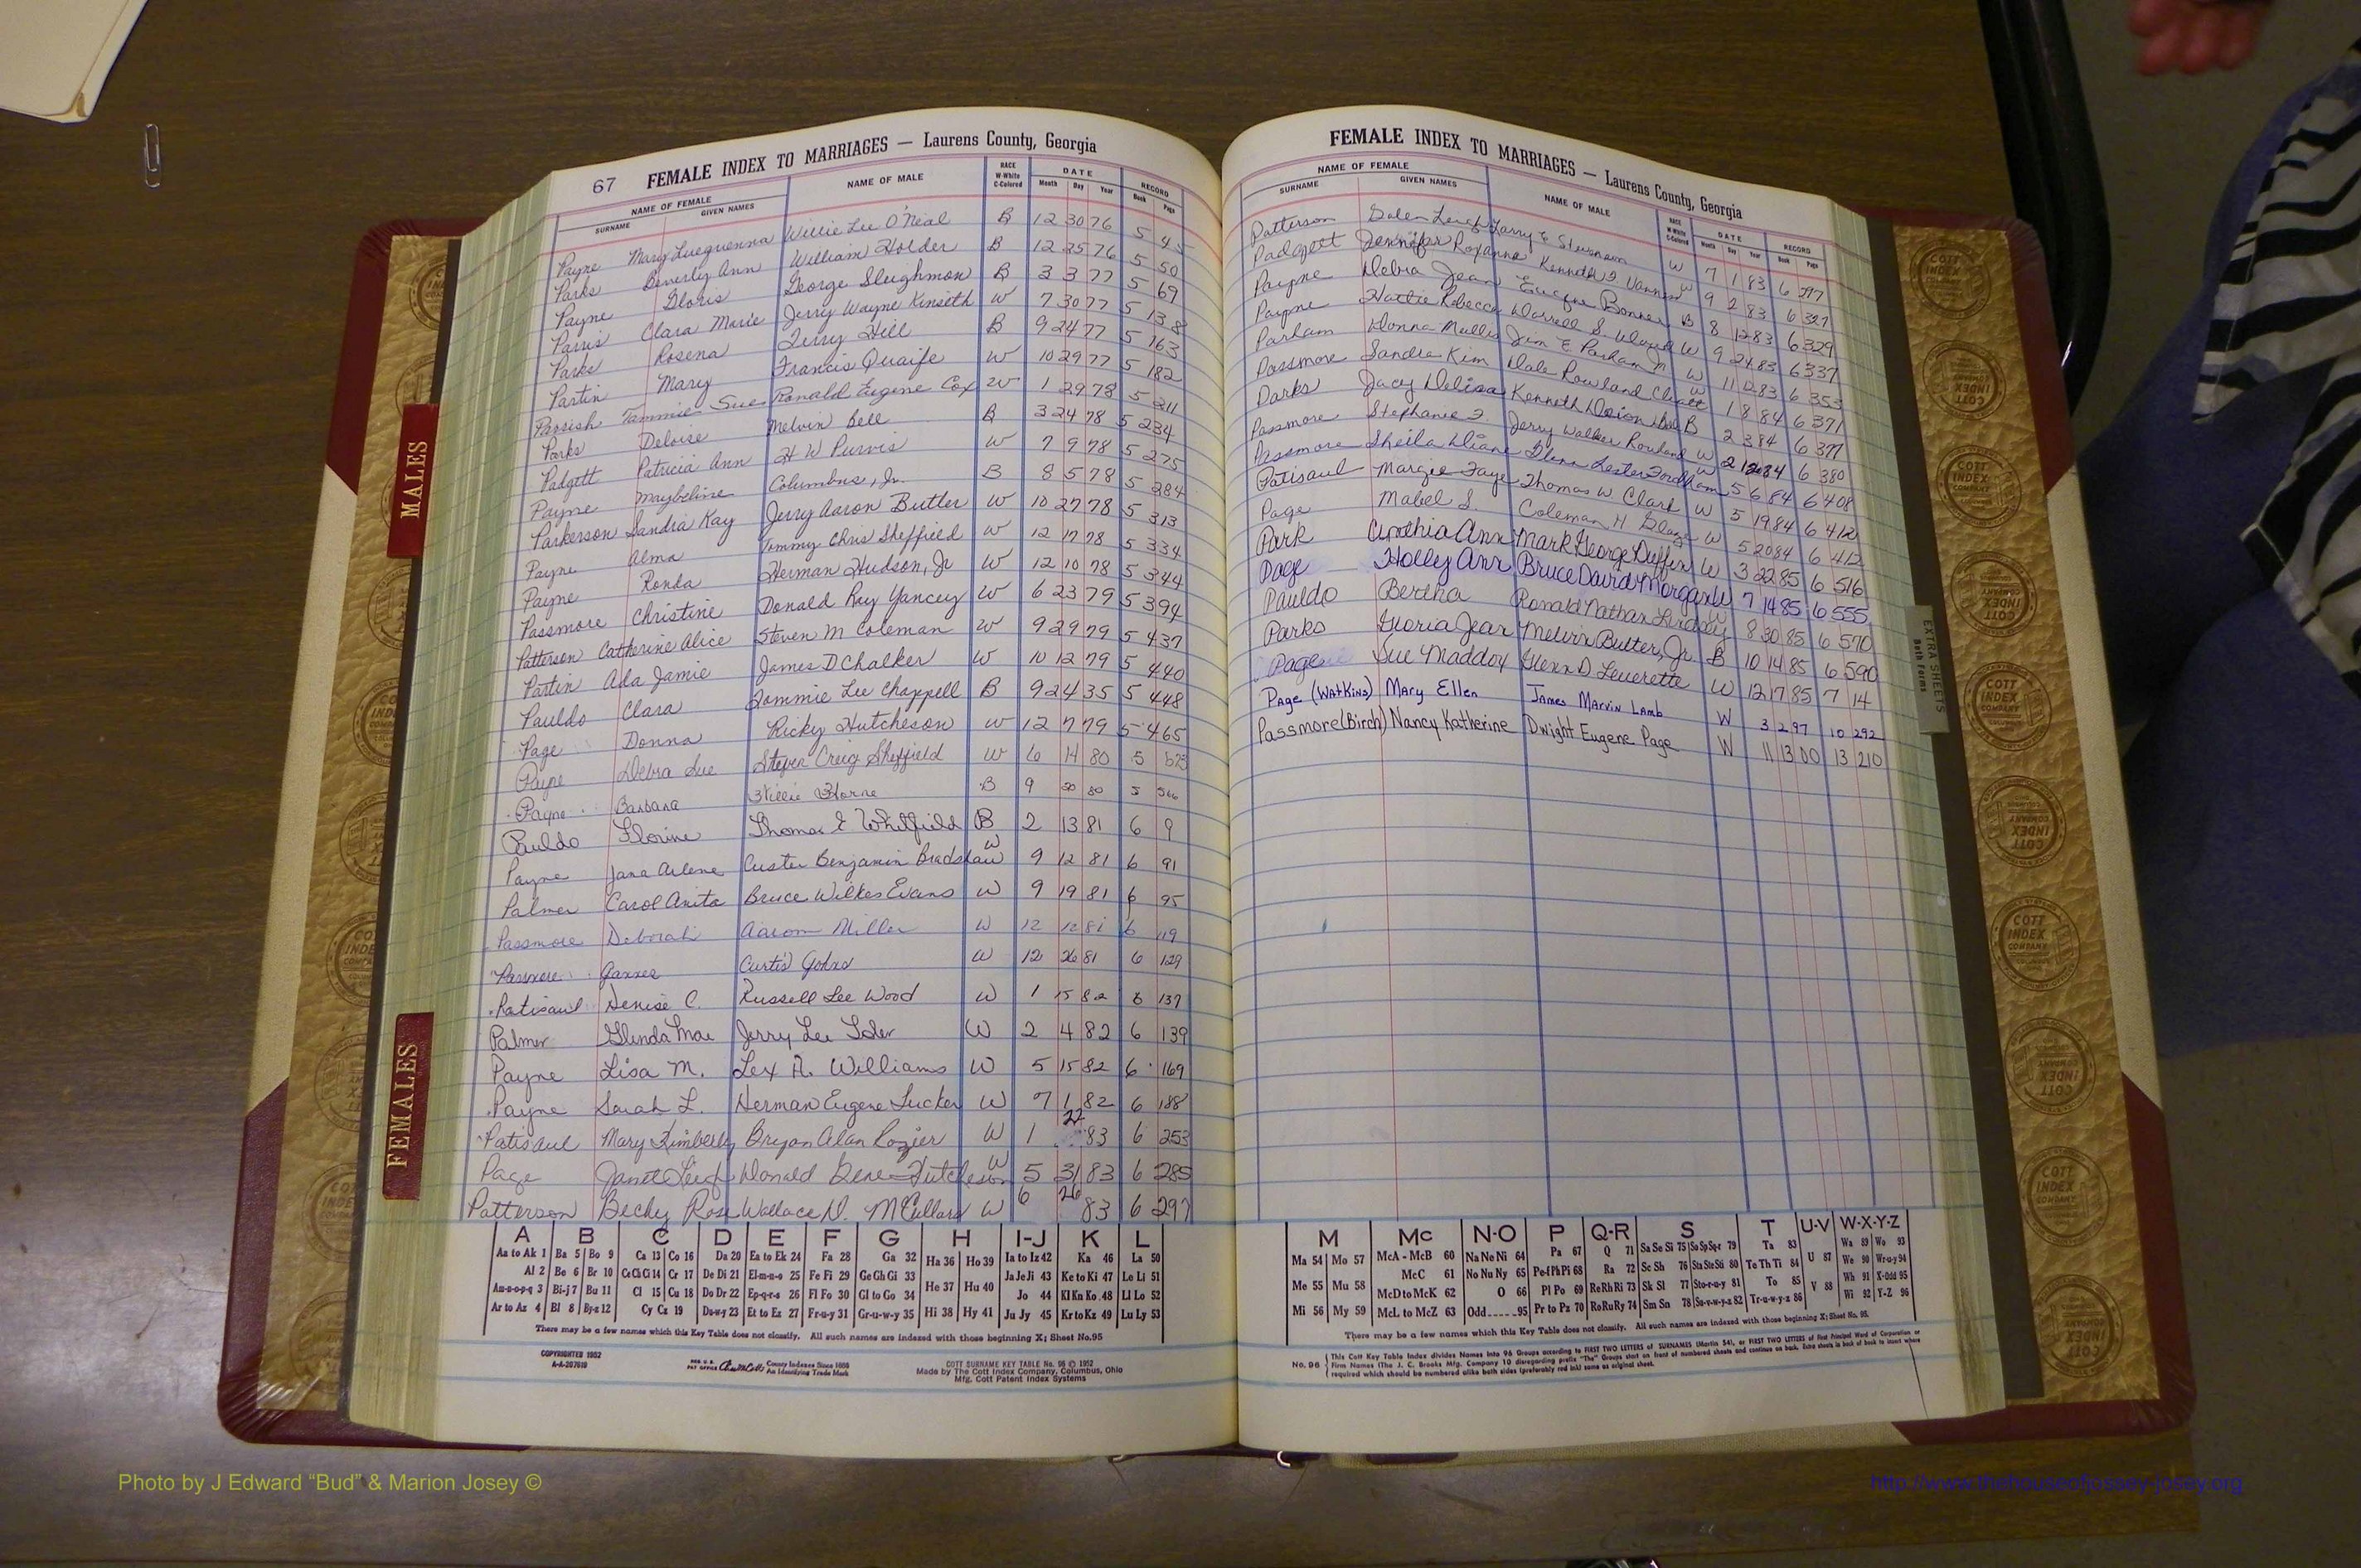 67 FEMALE INDEX TO MARRIAGES — Laurens County, Georgia
NAME OF FEMALE NAME OF MALE RACE W-White C-Colored DATE RECORD
SURNAME GIVEN NAMES Month Day Year Book Page
Payne Mary Willie Lee O'Neal B 12 30 76 5 45
Parks Beverly Ann William Holder B 12 25 76 5 50
Payne Gloris George Sleighmon B 3 3 77 5 69
Parris Clara Marie Jerry Wayne Kinseth W 7 30 77 5 138
Parks Rosena Terry Hill B 9 24 77 5 163
Partin Mary Francis Quaife W 10 29 77 5 182
Parrish Tammie Sue Ronald Eugene Cox W 1 29 78 5 211
Parks Deloise Melvin Bell B 3 24 78 5 234
Padgett Patricia Ann H W Purvis W 7 9 78 5 275
Payne Maybeline Columbus, Jr. B 8 5 78 5 284
Parkerson Sandra Kay Jerry Aaron Butler W 10 27 78 5 313
Payne Alma Tommy Chris Sheffield W 12 17 78 5 334
Payne Ronda Herman Hudson, Jr W 12 10 78 5 344
Passmore Christine Donald Ray Yancey W 6 23 79 5 394
Patterson Catherine Alice Steven M Coleman W 9 29 79 5 437
Partin Ada Jamie James D Chalker W 10 12 79 5 440
Pauldo Clara Tommie Lee Chappell B 9 24 35 5 448
Page Donna Ricky Hutcheson W 12 7 79 5 465
Payne Debra Sue Steven Craig Sheffield W 6 14 80 5
Payne Barbara Willie Horne B 9 20 80 5 566
Pauldo Florine Thomas E Whitfield B 2 13 81 6 9
Payne Jana Arlene Custer Benjamin Bradshaw W 9 12 81 6 91
Palmer Carol Anita Bruce Wilkes Evans W 9 19 81 6 95
Passmore Deborah Aaron Miller W 12 12 81 6 119
Passmore Curtis Johns W 12 26 81 6 129
Patisaul Denise C. Russell Lee Wood W 1 15 82 6 137
Palmer Glenda Mae Jerry Lee W 2 4 82 6 139
Payne Lisa M. Lex A. Williams W 5 15 82 6 169
Payne Sarah L. Herman Eugene Tucker W 7 1 82 6 188
Patisaul Mary Kimberly Bryan Alan Rozier W 1 22 83 6 253
Page Janet Leigh Donald Gene Hutcheson W 5 31 83 6 285
Patterson Becky Rose Wallace D. McCullars W 6 26 83 6 297
A B C D E F G H I-J K L
Aa to Ak 1 Ba 5 Bo 9 Ca 13 Co 16 Da 20 Ea to Ek 24 Fa 28 Ga 32 Ha 36 Ho 39 Ia to Iz 42 Ka 46 La 50
Al 2 Be 6 Br 10 Ce Ch Ci 14 Cr 17 De Di 21 El-m-n-o 25 Fe Fi 29 Ge Gh Gi 33 Ja Je Ji 43 Ke to Ki 47 Le Li 51
Am-n-o-p-q 3 Bi-j 7 Bu 11 Cl 15 Cu 18 Do Dr 22 Ep-q-r-s 26 Fl Fo 30 Gl to Go 34 He 37 Hu 40 Jo 44 Kl Kn Ko 48 Ll Lo 52
Ar to Az 4 Bl 8 By-z 12 Cy Cz 19 Du-w-y 23 Et to Ez 27 Fr-u-y 31 Gr-u-w-y 35 Hi 38 Hy 41 Ju Jy 45 Kr to Kz 49 Lu Ly 53
There may be a few names which this Key Table does not classify. All such names are indexed with those beginning X; Sheet No. 95
COPYRIGHTED 1952
A-A-207619
REG. U.S. PAT OFFICE County Indexes Since 1888
An Identifying Trade Mark
COTT SURNAME KEY TABLE No. 96 © 1952
Made by The Cott Index Company, Columbus, Ohio
Mfg. Cott Patent Index Systems
FEMALE INDEX TO MARRIAGES — Laurens County, Georgia
NAME OF FEMALE NAME OF MALE RACE W-White C-Colored DATE RECORD
SURNAME GIVEN NAMES Month Day Year Book Page
Patterson Galen Leigh Larry E W 7 1 83 6 297
Padgett Jennifer Roxanne Kenneth W 9 2 83 6 327
Payne Debra Jean Eugene Bonner B 8 12 83 6 329
Payne Hattie Rebecca Darrell S. W 9 24 83 6 337
Parham Donna Mullis Jim E Parham Jr W 11 12 83 6 353
Passmore Sandra Kim Dale Rowland W 1 8 84 6 371
Parks Jacy Delisa Kenneth B 2 3 84 6 377
Passmore Stephanie Jerry Walker Rowland W 2 12 84 6 380
Passmore Sheila Diane Glenn Lester Fordham W 5 6 84 6 408
Patisaul Margie Faye Thomas W. Clark W 5 19 84 6 412
Page Mabel S. Coleman H W 5 20 84 6 412
Park Cynthia Ann Mark George Duffin W 3 22 85 6 516
Page Holley Ann Bruce David Morgan W 7 14 85 6 555
Pauldo Bertha Ronald Nathan Lindsey 8 30 85 6 570
Parks Gloria Jean Melvin Butler, Jr. B 10 14 85 6 590
Page Sue Maddox Glenn D. Leverette W 12 17 85 7 14
Page (Watkins) Mary Ellen James Marvin Lamb W 3 2 97 10 292
Passmore (Birch) Nancy Katherine Dwight Eugene Page W 11 13 00 13 210
M Mc N-O P Q-R S T U-V W-X-Y-Z
Ma 54 Mo 57 McA - McB 60 Na Ne Ni 64 Pa 67 Q 71 Sa Se Si 75 So Sp Sq-r 79 Ta 83 U 87 Wa 89 Wo 93
Me 55 Mu 58 McC 61 No Nu Ny 65 Pe-f Ph Pi 68 Ra 72 Sc Sh 76 Sta Ste Sti 80 Te Th Ti 84 We 90 Wr-u-y 94
McD to McK 62 O 66 Pl Po 69 Re Rh Ri 73 Sk Sl 77 Sto-r-u-y 81 To 85 V 88 Wh 91 X-Odd 95
Mi 56 My 59 McL to McZ 63 Odd 95 Pr to Pz 70 Ro Ru Ry 74 Sm Sn 78 Su-v-w-y-z 82 Tr-u-w-y-z 86 Wi 92 Y-Z 96
There may be a few names which this Key Table does not classify. All such names are indexed with those beginning X; Sheet No. 95.
No. 96 This Cott Key Table Index divides Names into 96 Groups according to FIRST TWO LETTERS of SURNAMES (Martin 54), or FIRST TWO LETTERS of First Principal Word of Corporation or
Firm Names (The J. C. Brooks Mfg. Company 10 disregarding prefix "The") Groups start on front of numbered sheets and continue on back. Extra sheets in back of book to insert where
required which should be numbered alike both sides (preferably red ink) same as original sheet.
MALES
FEMALES
EXTRA SHEETS
Both Forms
COTT INDEX COMPANY
Photo by J Edward "Bud" & Marion Josey ©
http://www.thehouseofjossey-josey.org